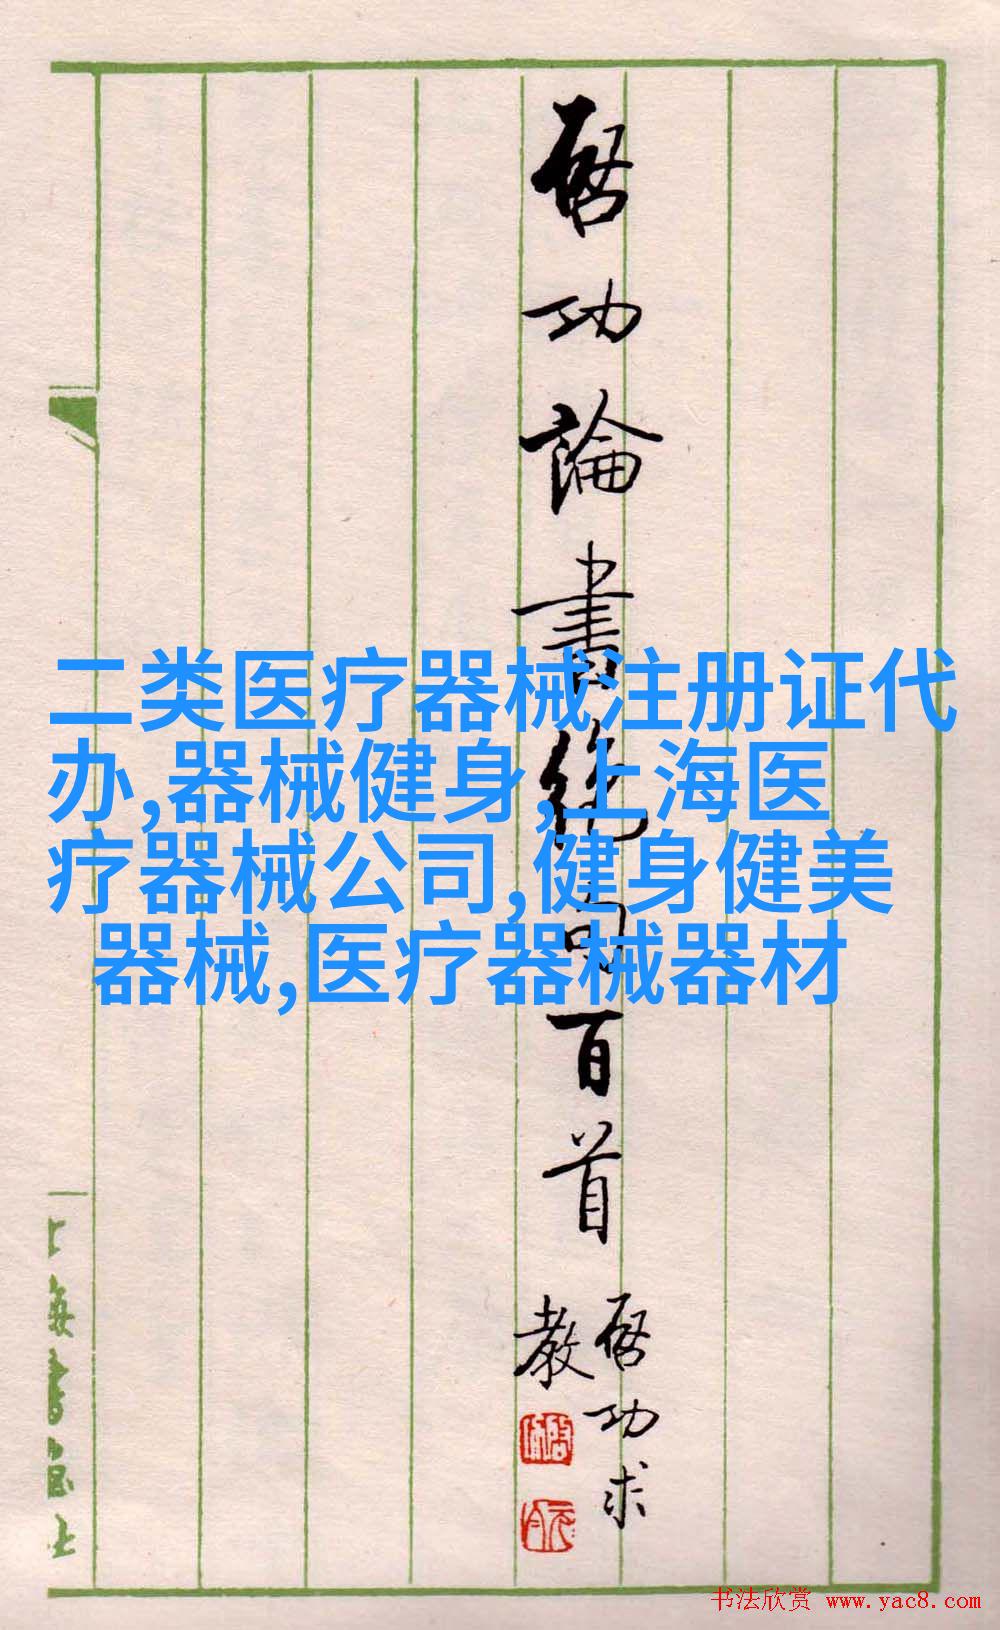 启功論書絕句百首
启功求
教
二类医疗器械注册证代
办,器械健身,上海医
疗器械公司,健身健美
器械,医疗器械器材
上海書画社
书法欣赏 www.yac8.com